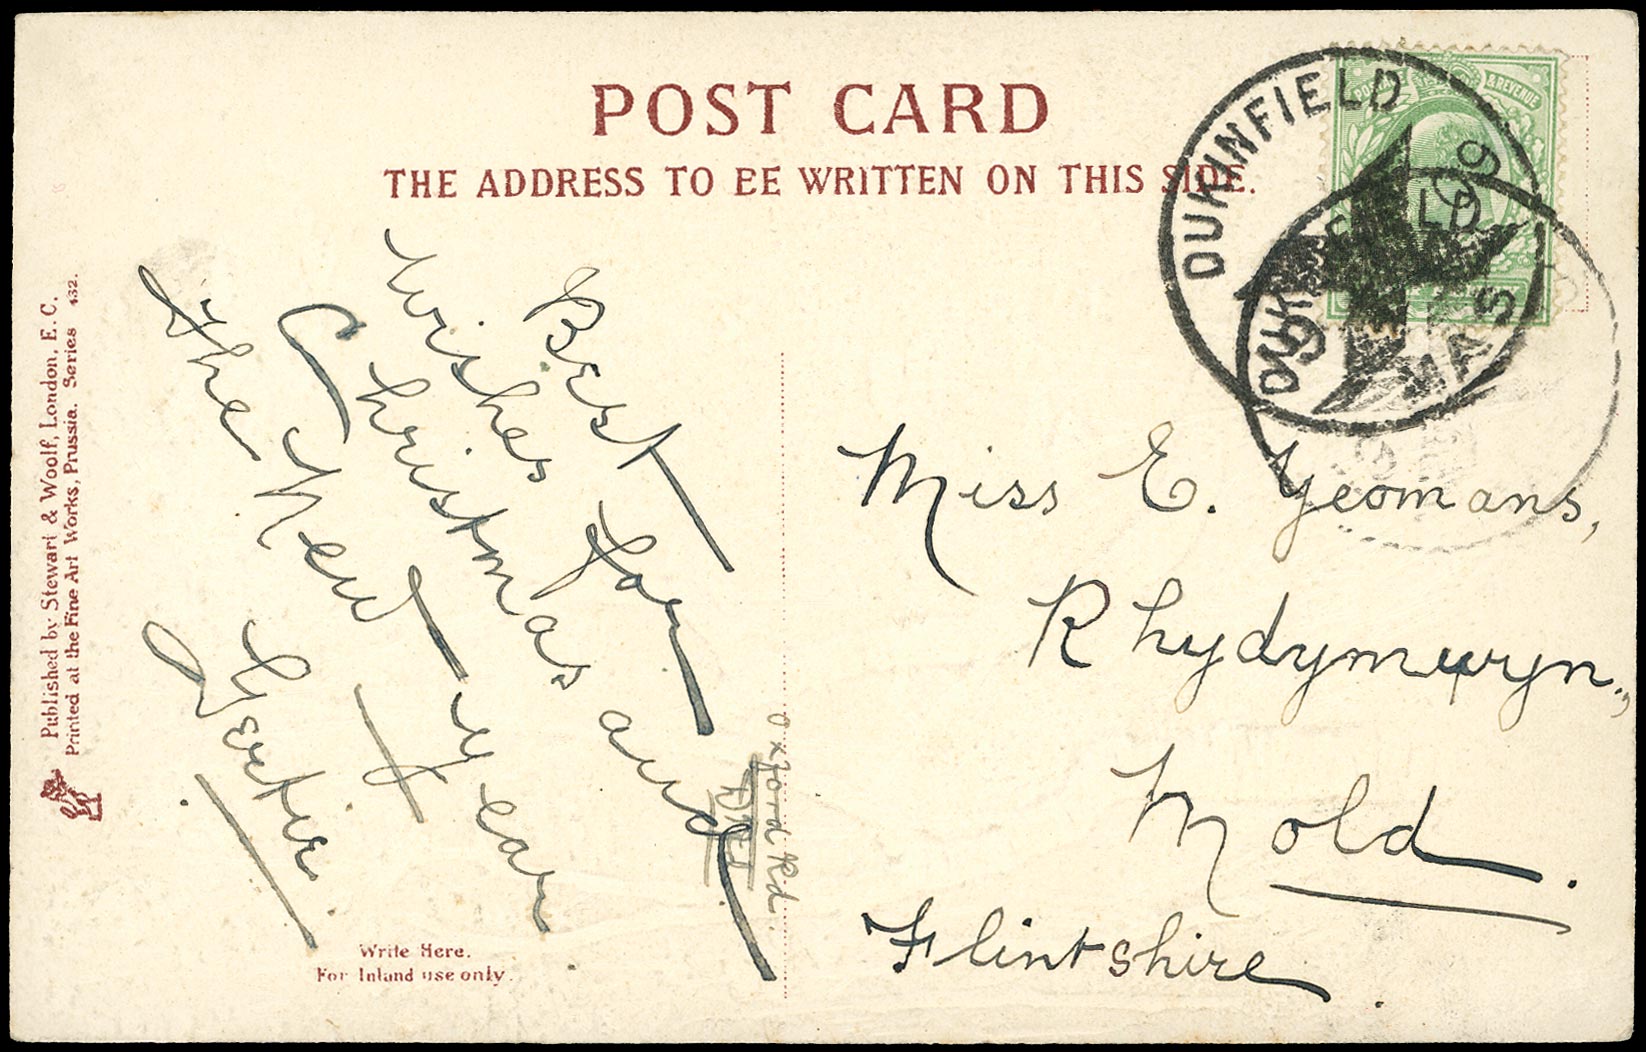 POST CARD
THE ADDRESS TO BE WRITTEN ON THIS SIDE.
POSTAGE & REVENUE
DUKINFIELD
09
XMAS
DUKINFIELD
Published by Stewart & Woolf, London, E. C.
Printed at the Fine Art Works, Prussia. Series 432.
Best
wishes for
Christmas and
the New Year
from
Gertie
Oxford Rd.
Miss E. Yeomans,
Rhydymwyn,
Mold.
Flintshire.
Write Here.
For Inland use only.